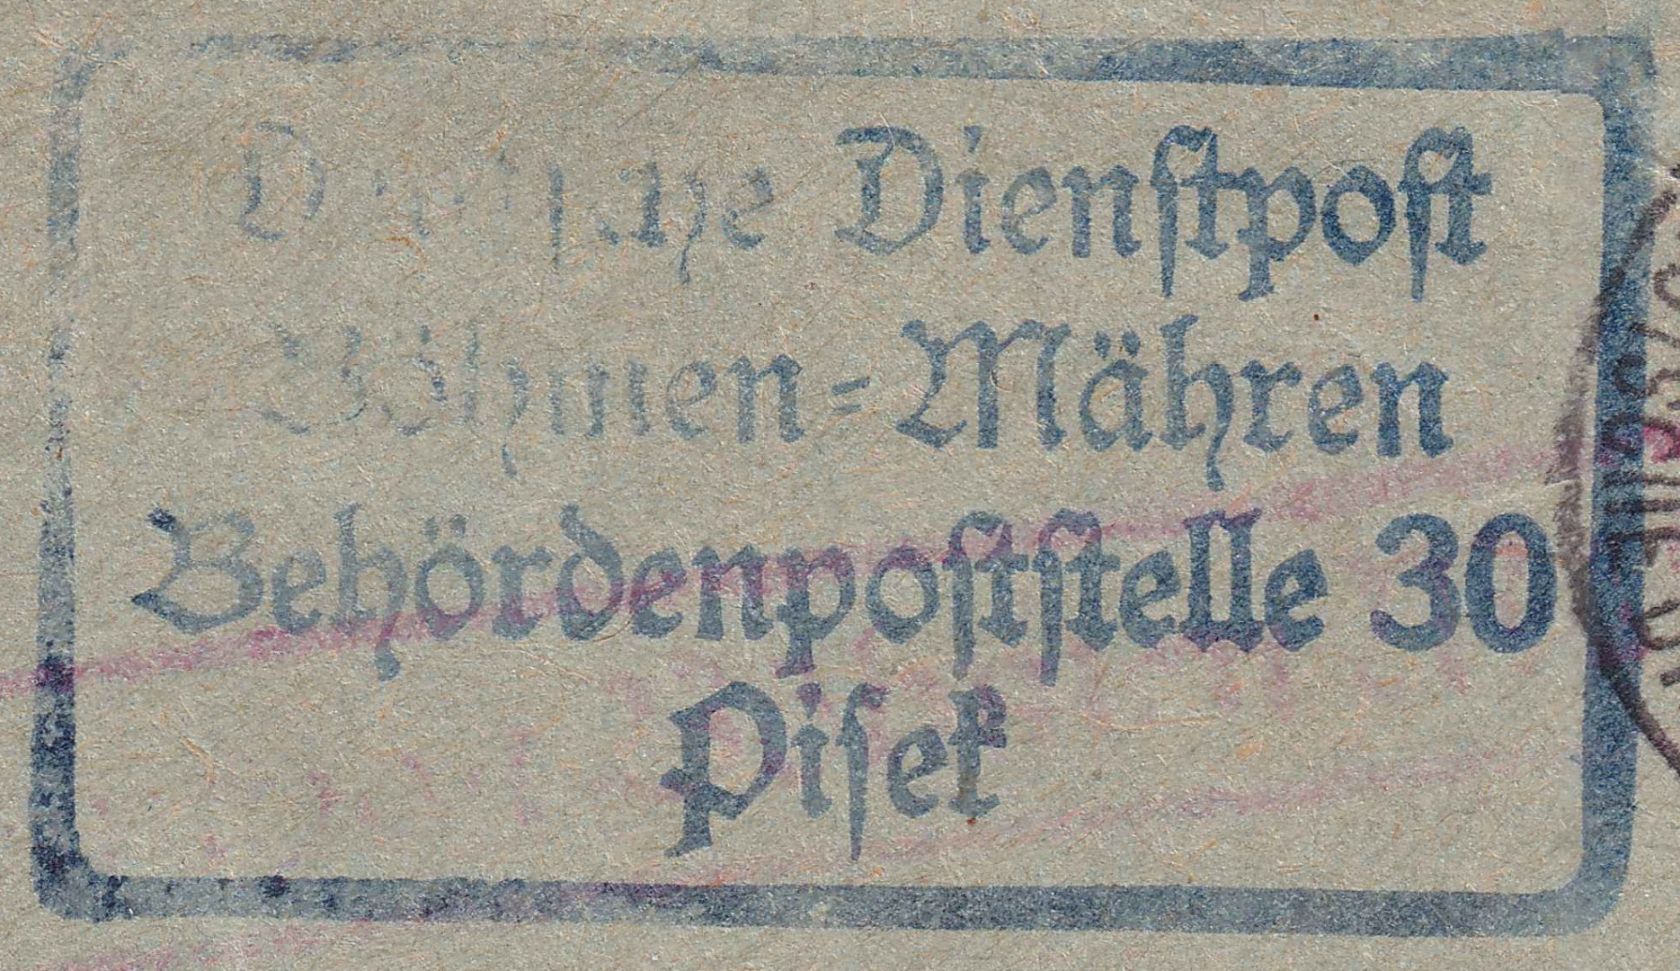 Deutsche Dienstpost
Böhmen-Mähren
Behördenpoststelle 30
Pisek